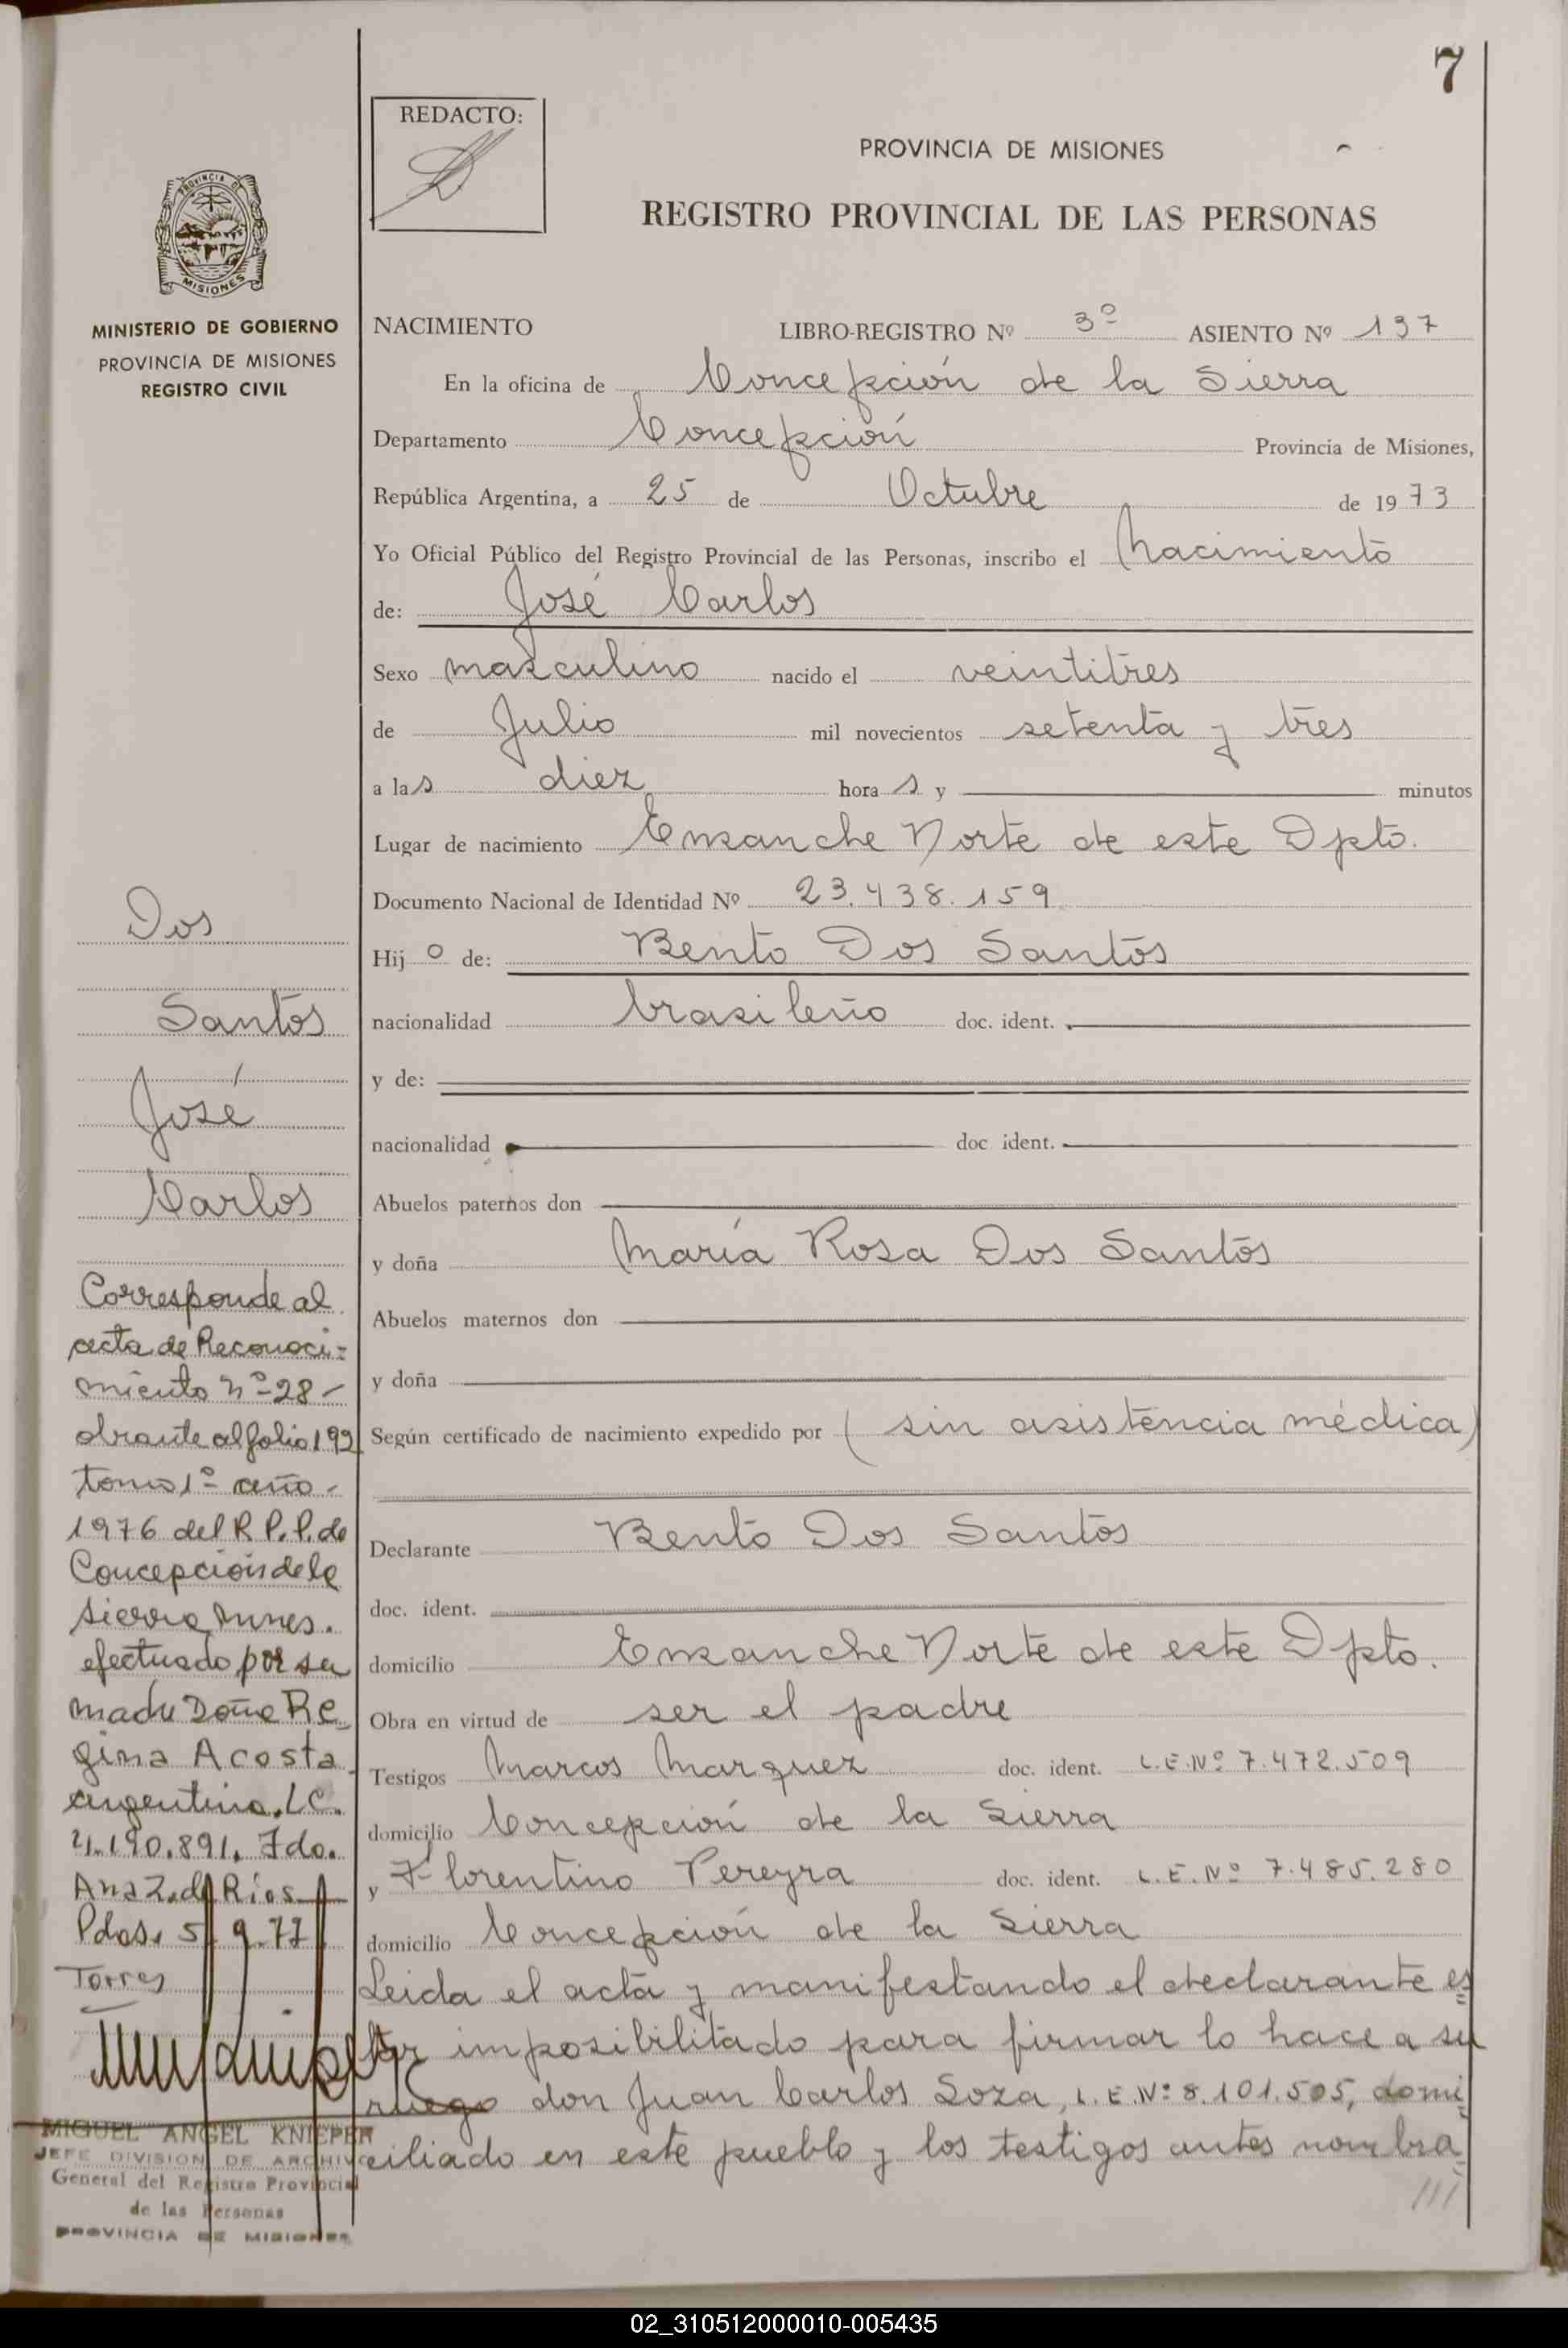 7
REDACTO:
PROVINCIA DE MISIONES
REGISTRO PROVINCIAL DE LAS PERSONAS
PROVINCIA DE
MISIONES
MINISTERIO DE GOBIERNO
PROVINCIA DE MISIONES
REGISTRO CIVIL
NACIMIENTO LIBRO-REGISTRO Nº 3º ASIENTO Nº 137
En la oficina de Concepción de la Sierra
Departamento Concepción Provincia de Misiones,
República Argentina, a 25 de Octubre de 1973
Yo Oficial Público del Registro Provincial de las Personas, inscribo el Nacimiento
de: José Carlos
Sexo masculino nacido el veintitres
de Julio mil novecientos setenta y tres
a las diez horas y minutos
Lugar de nacimiento Ensanche Norte de este Dpto.
Documento Nacional de Identidad Nº 23.438.159
Hijo de: Bento Dos Santos
nacionalidad brasileño doc. ident.
y de:
nacionalidad doc ident.
Abuelos paternos don
y doña María Rosa Dos Santos
Abuelos maternos don
y doña
Según certificado de nacimiento expedido por (sin asistencia médica)
Declarante Bento Dos Santos
doc. ident.
domicilio Ensanche Norte de este Dpto.
Obra en virtud de ser el padre
Testigos Marcos Marquez doc. ident. L.E.Nº 7.472.509
domicilio Concepción de la Sierra
y Florentino Pereyra doc. ident. L.E.Nº 7.485.280
domicilio Concepción de la Sierra
Leida el acta y manifestando el declarante es=
tar imposibilitado para firmar lo hace a su
ruego don Juan Carlos Soza, L.E.Nº 8.101.505, domi=
ciliado en este pueblo y los testigos antes nombra=
///
Dos
Santos
José
Carlos
Corresponde al
acta de Reconoci=
miento nº 28-
obrante al folio 192
tomo 1º año-
1976 del R.P.P. de
Concepción de la
Sierra Mnes.
efectuado por su
madre Doña Re
gina Acosta
argentina. LC.
4.190.891. Fdo.
Ana Z. de Ríos
Pdas. 5-9-77
Torres
MIGUEL ANGEL KNIEPER
JEFE DIVISION DE ARCHIVO
General del Registro Provincial
de las Personas
PROVINCIA DE MISIONES
02_310512000010-005435